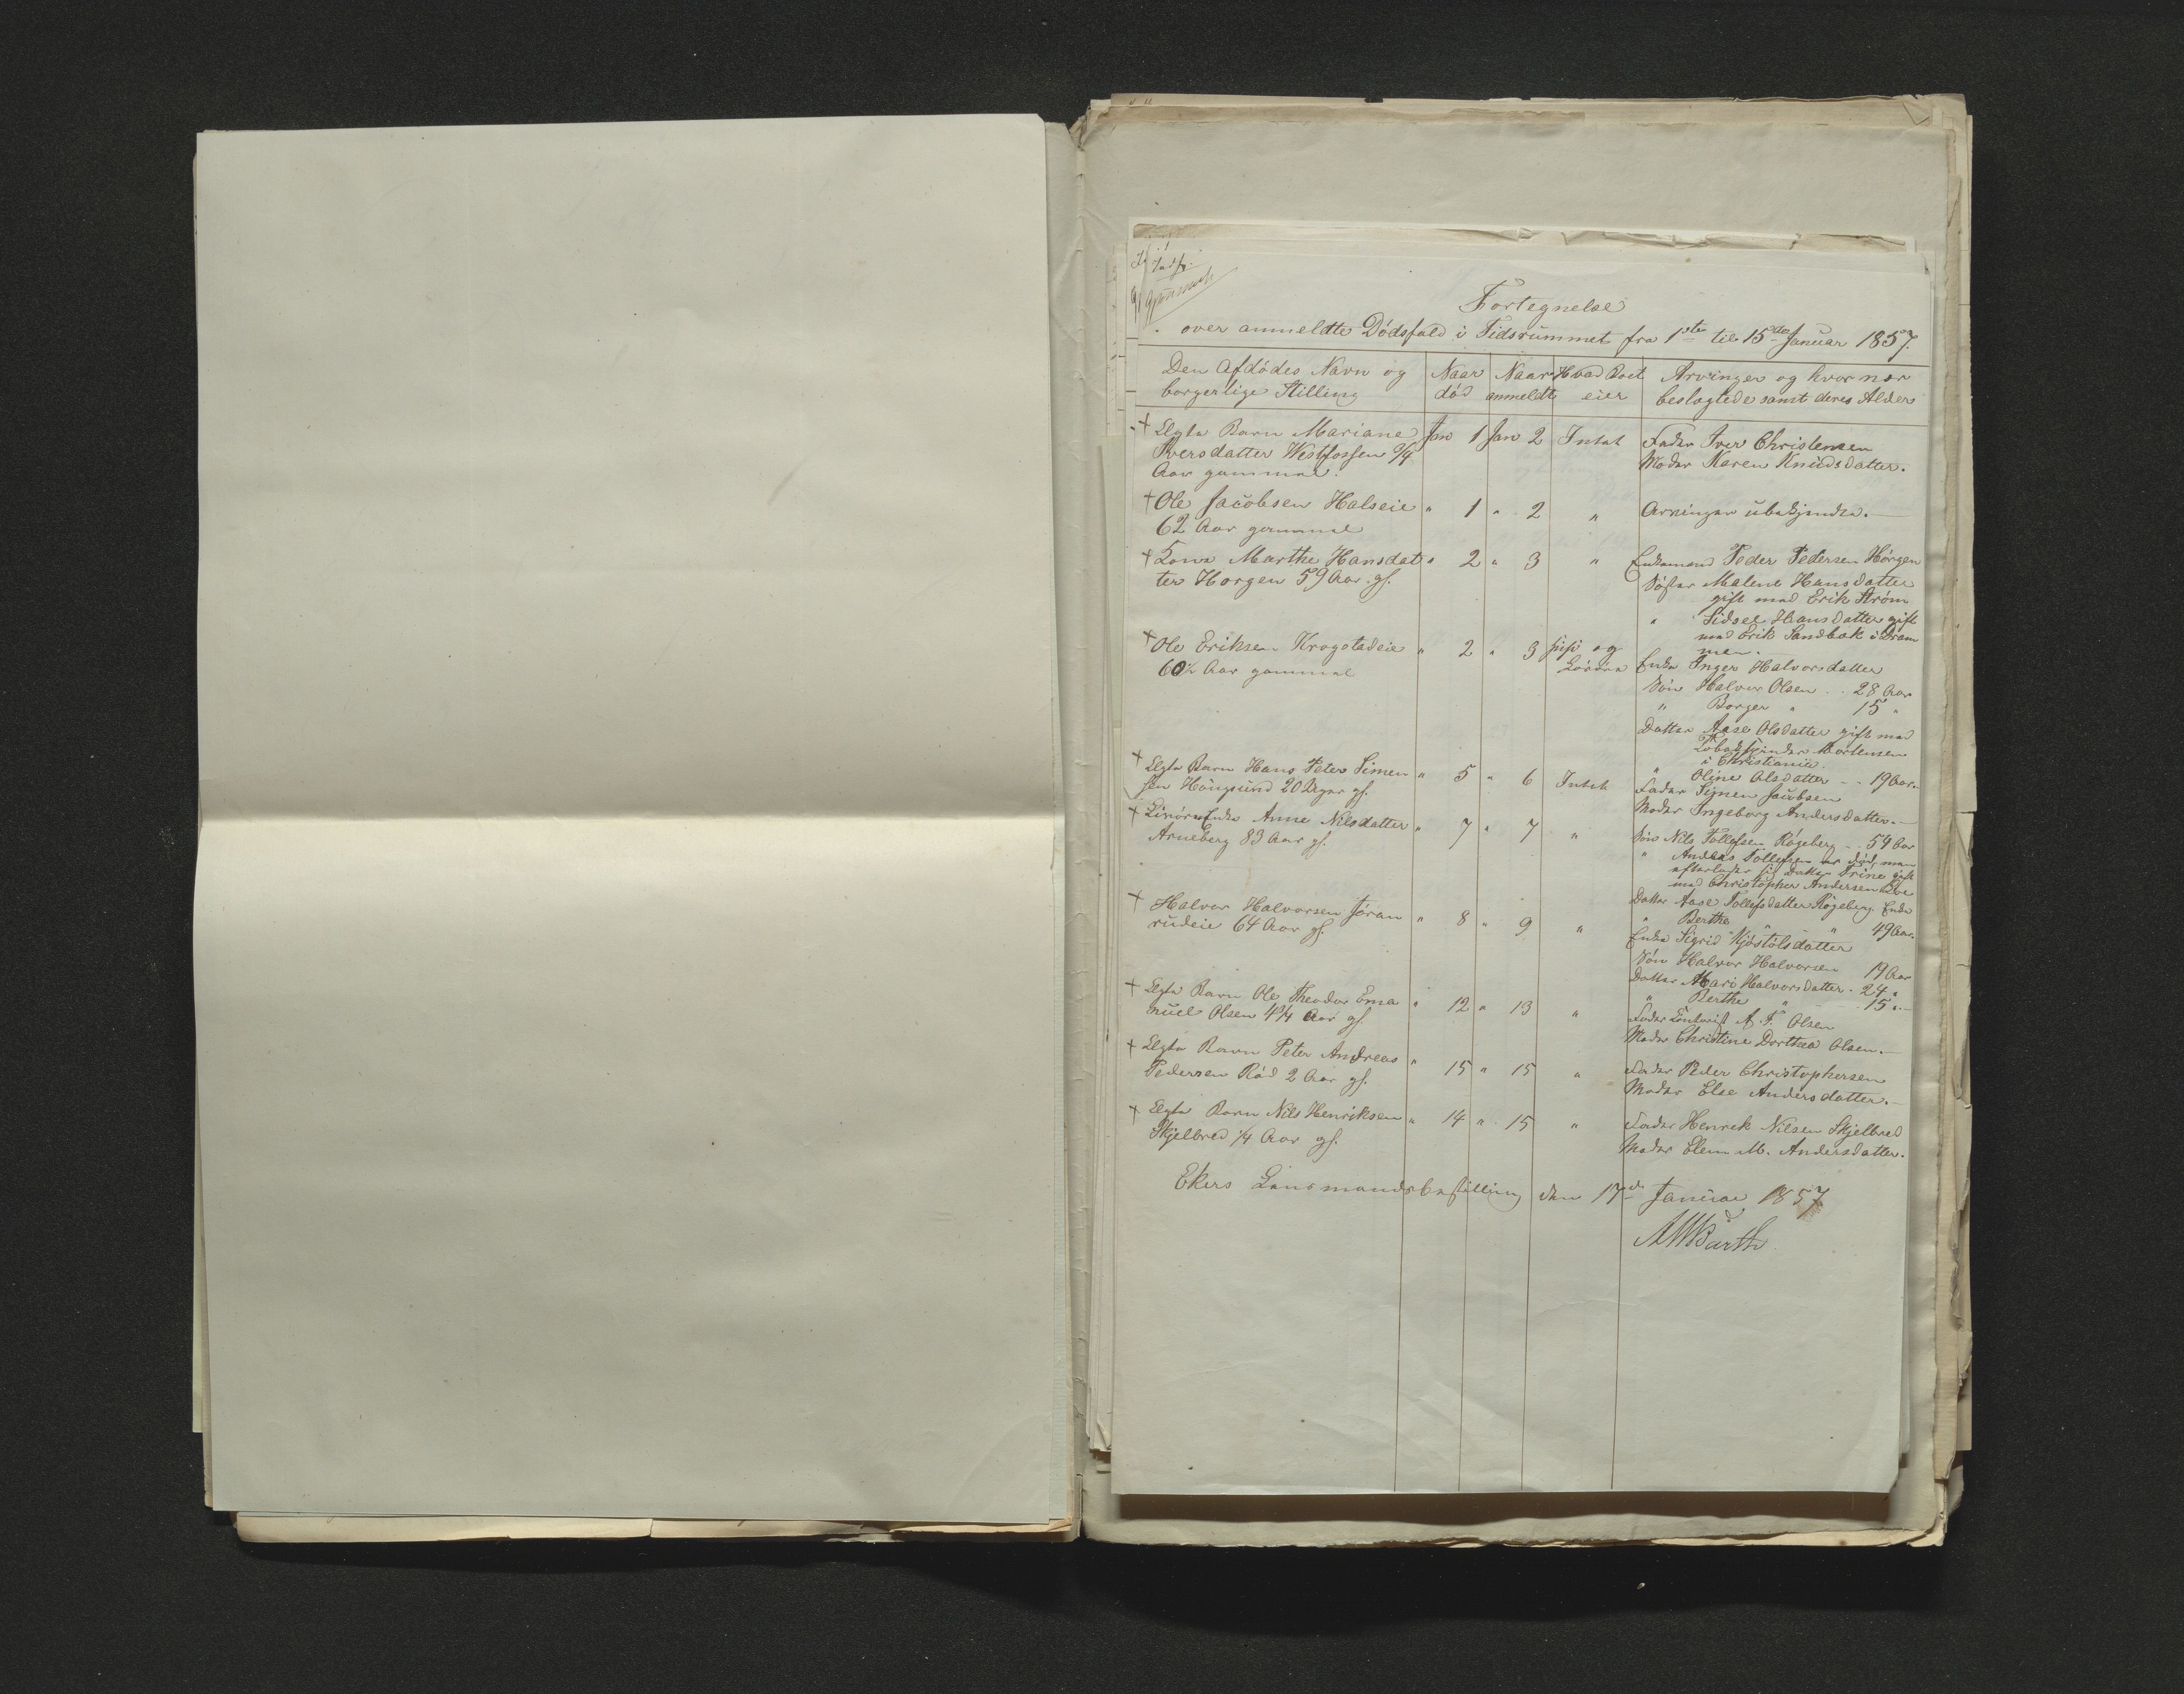 Fortegnelse
over anmeldte Dödsfald i Tidsrummet fra 1ste til 15de Januar 1857.
Den Afdödes Navn og borgerlige Stilling
Naar död
Naar anmeldt
Hvad Boet eier
Arvinger og hvor nær beslægtede samt deres Alder
+ Ægte Barn Mariane Jan 1 Jan 2 Intet Fader Iver Christensen
Iversdatter Westfossen 3/4 Moder Karen Knudsdatter.
Aar gammel.
+ Ole Jacobsen Halseie " 1 " 2 " Arvinger ubekjendte.
62 Aar gammel
+ Kone Marthe Hansdat " 2 " 3 " Enkemand Peder Pedersen Horgen
ter Horgen 59 Aar gl. Söster Malene Hansdatter
gift med Erik Ström
" Sidsel Hansdatter gift
med Erik Sandbak i Dram
men.
+ Ole Eriksen Krogstadeie " 2 " 3 og Enke Inger Halvorsdatter
60 1/2 Aar gammel
Sön Halvor Olsen .. 28 Aar
" Borger " 15 "
Datter Aase Olsdatter gift med
Tobakspinder Mortensen
i Christiania.
" Oline Olsdatter -- 19 Aar.
+ Ægte Barn Hans Peter Simen " 5 " 6 Intet Fader Simen Jacobsen
sen Hougsund 20 Uger gl. Moder Ingeborg Andersdatter.
+ Enke Anne Nilsdatter " 7 " 7 " Sön Nils Tollefsen Rögeberg .. 54 Aar
Arneberg 83 Aar gl. " Anders Tollefsen er död, men
efterlader sig Datter Trine gift
med Christopher Andersen
Datter Aase Tollefsdatter Rögeberg Enke
" Berthe " " 49 Aar.
+ Halvor Halvorsen Jöran " 8 " 9 " Enke Sigrid Kjöstölsdatter
rudeie 64 Aar gl. Sön Halvor Halvorsen 19 Aar
Datter Mari Halvorsdatter . 24 "
" Berthe " 15 "
+ Ægte Barn Ole Theodor Ema " 12 " 13 " Fader A. F. Olsen
nuel Olsen 4 1/4 Aar gl. Moder Christine Dorthea Olsen.
+ Ægte Barn Peter Andreas " 15 " 15 " Fader Peder Christophersen
Pedersen Röd 2 Aar gl. Moder Else Andersdatter.
+ Ægte Barn Nils Henriksen " 14 " 15 " Fader Henrik Nilsen Skjelbred
Skjelbred 1/4 Aar gl. Moder Elen M. Andersdatter.
Ekers Lensmandsbestilling den 17de Januar 1857
Barth